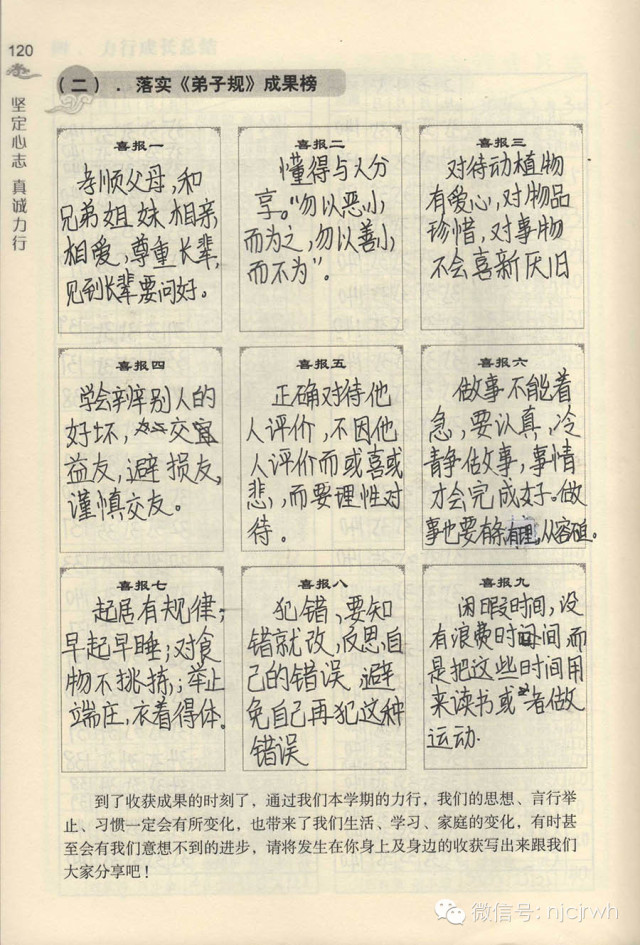 120
坚定心志 真诚力行
（二）．落实《弟子规》成果榜
喜报一
孝顺父母,和
兄弟姐妹相亲
相爱,尊重长辈,
见到长辈要问好。
喜报二
懂得与人分
享。“勿以恶小
而为之,勿以善小
而不为”。
喜报三
对待动植物
有爱心,对物品
珍惜,对事物
不会喜新厌旧
喜报四
学会辨别人的
好坏,交
益友,避损友,
谨慎交友。
喜报五
正确对待他
人评价,不因他
人评价而或喜或
悲,而要理性对
待。
喜报六
做事不能着
急,要认真,冷
静做故事,事情
才会完成好。做
事也要有条有理,从容
喜报七
起居有规律;
早起早睡;对食
物不挑拣,;举止
端庄,衣着得体.
喜报八
犯错、要知
错就改,反思自
己的错误,避
免自己再犯这种
错误
喜报九
闲暇时间,没
有浪费时间,而
是把这些时间用
来读书或者做
运动.
到了收获成果的时刻了，通过我们本学期的力行，我们的思想、言行举
止、习惯一定会有所变化，也带来了我们生活、学习、家庭的变化，有时甚
至会有我们意想不到的进步，请将发生在你身上及身边的收获写出来跟我们
大家分享吧！
微信号: njcjrwh